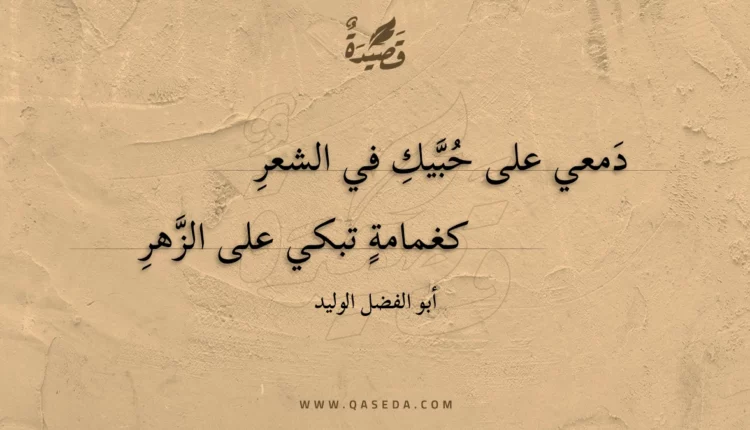 قَصِيدَةٌ
دَمعي على حُبَّيكِ في الشعرِ
كغمامةٍ تبكي على الزَّهرِ
أبو الفضل الوليد
WWW.QASEDA.COM